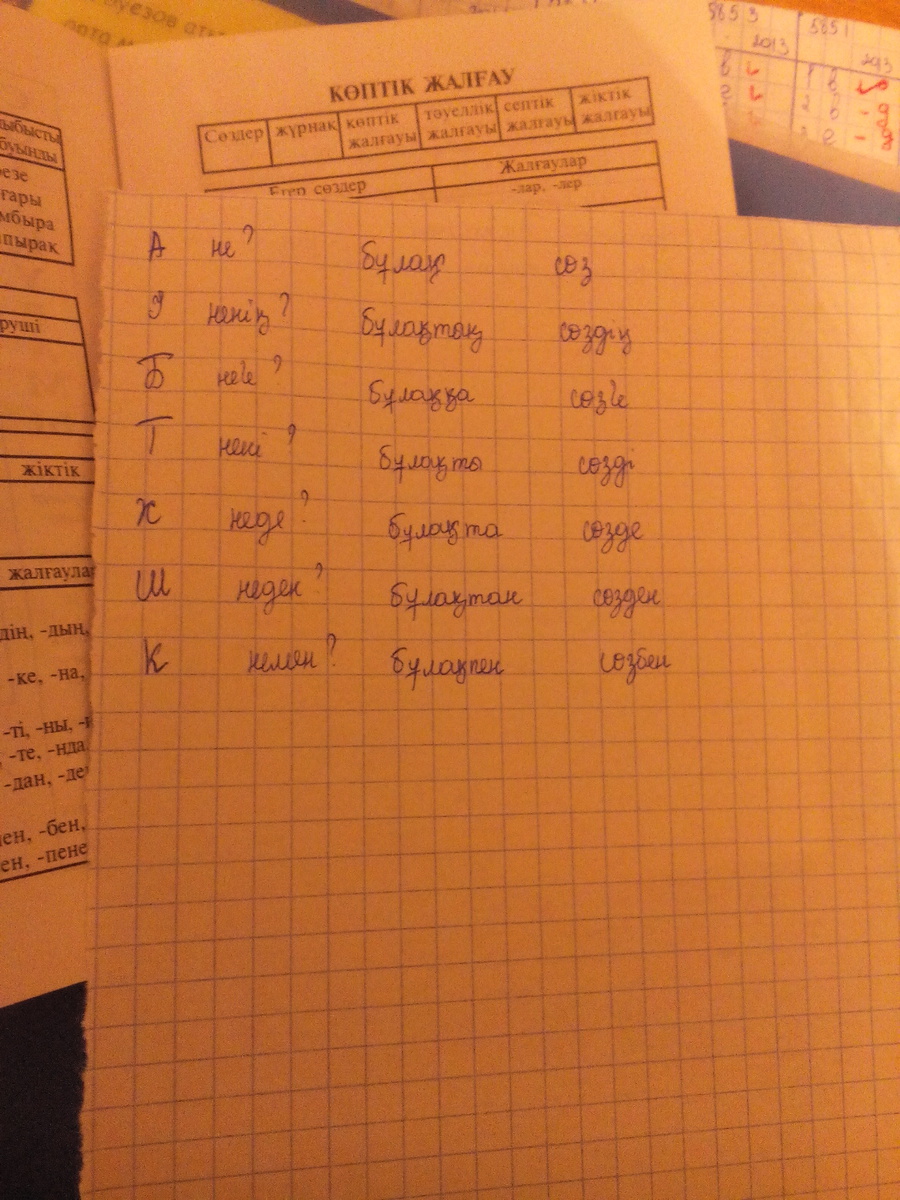 КӨПТІК ЖАЛҒАУ
Сөздер жұрнақ көптік жалғауы тәуелдік жалғауы септік жалғауы жіктік жалғауы
Егер сөздер Жалғаулар
-лар, -лер
А не? бұлақ сөз
І ненің? бұлақтың сөздің
Б неге? бұлаққа сөзге
Т нені? бұлақты сөзді
Ж неде? бұлақта сөзде
Ш неден? бұлақтан сөзден
К немен? бұлақпен сөзбен
руші
жіктік
жалғаула
дің, -дың,
-ке, -на,
-ті, -ны,
-те, -нда
-дан, -де
ен, -бен,
ен, -пене
5853 5851
2013 2013